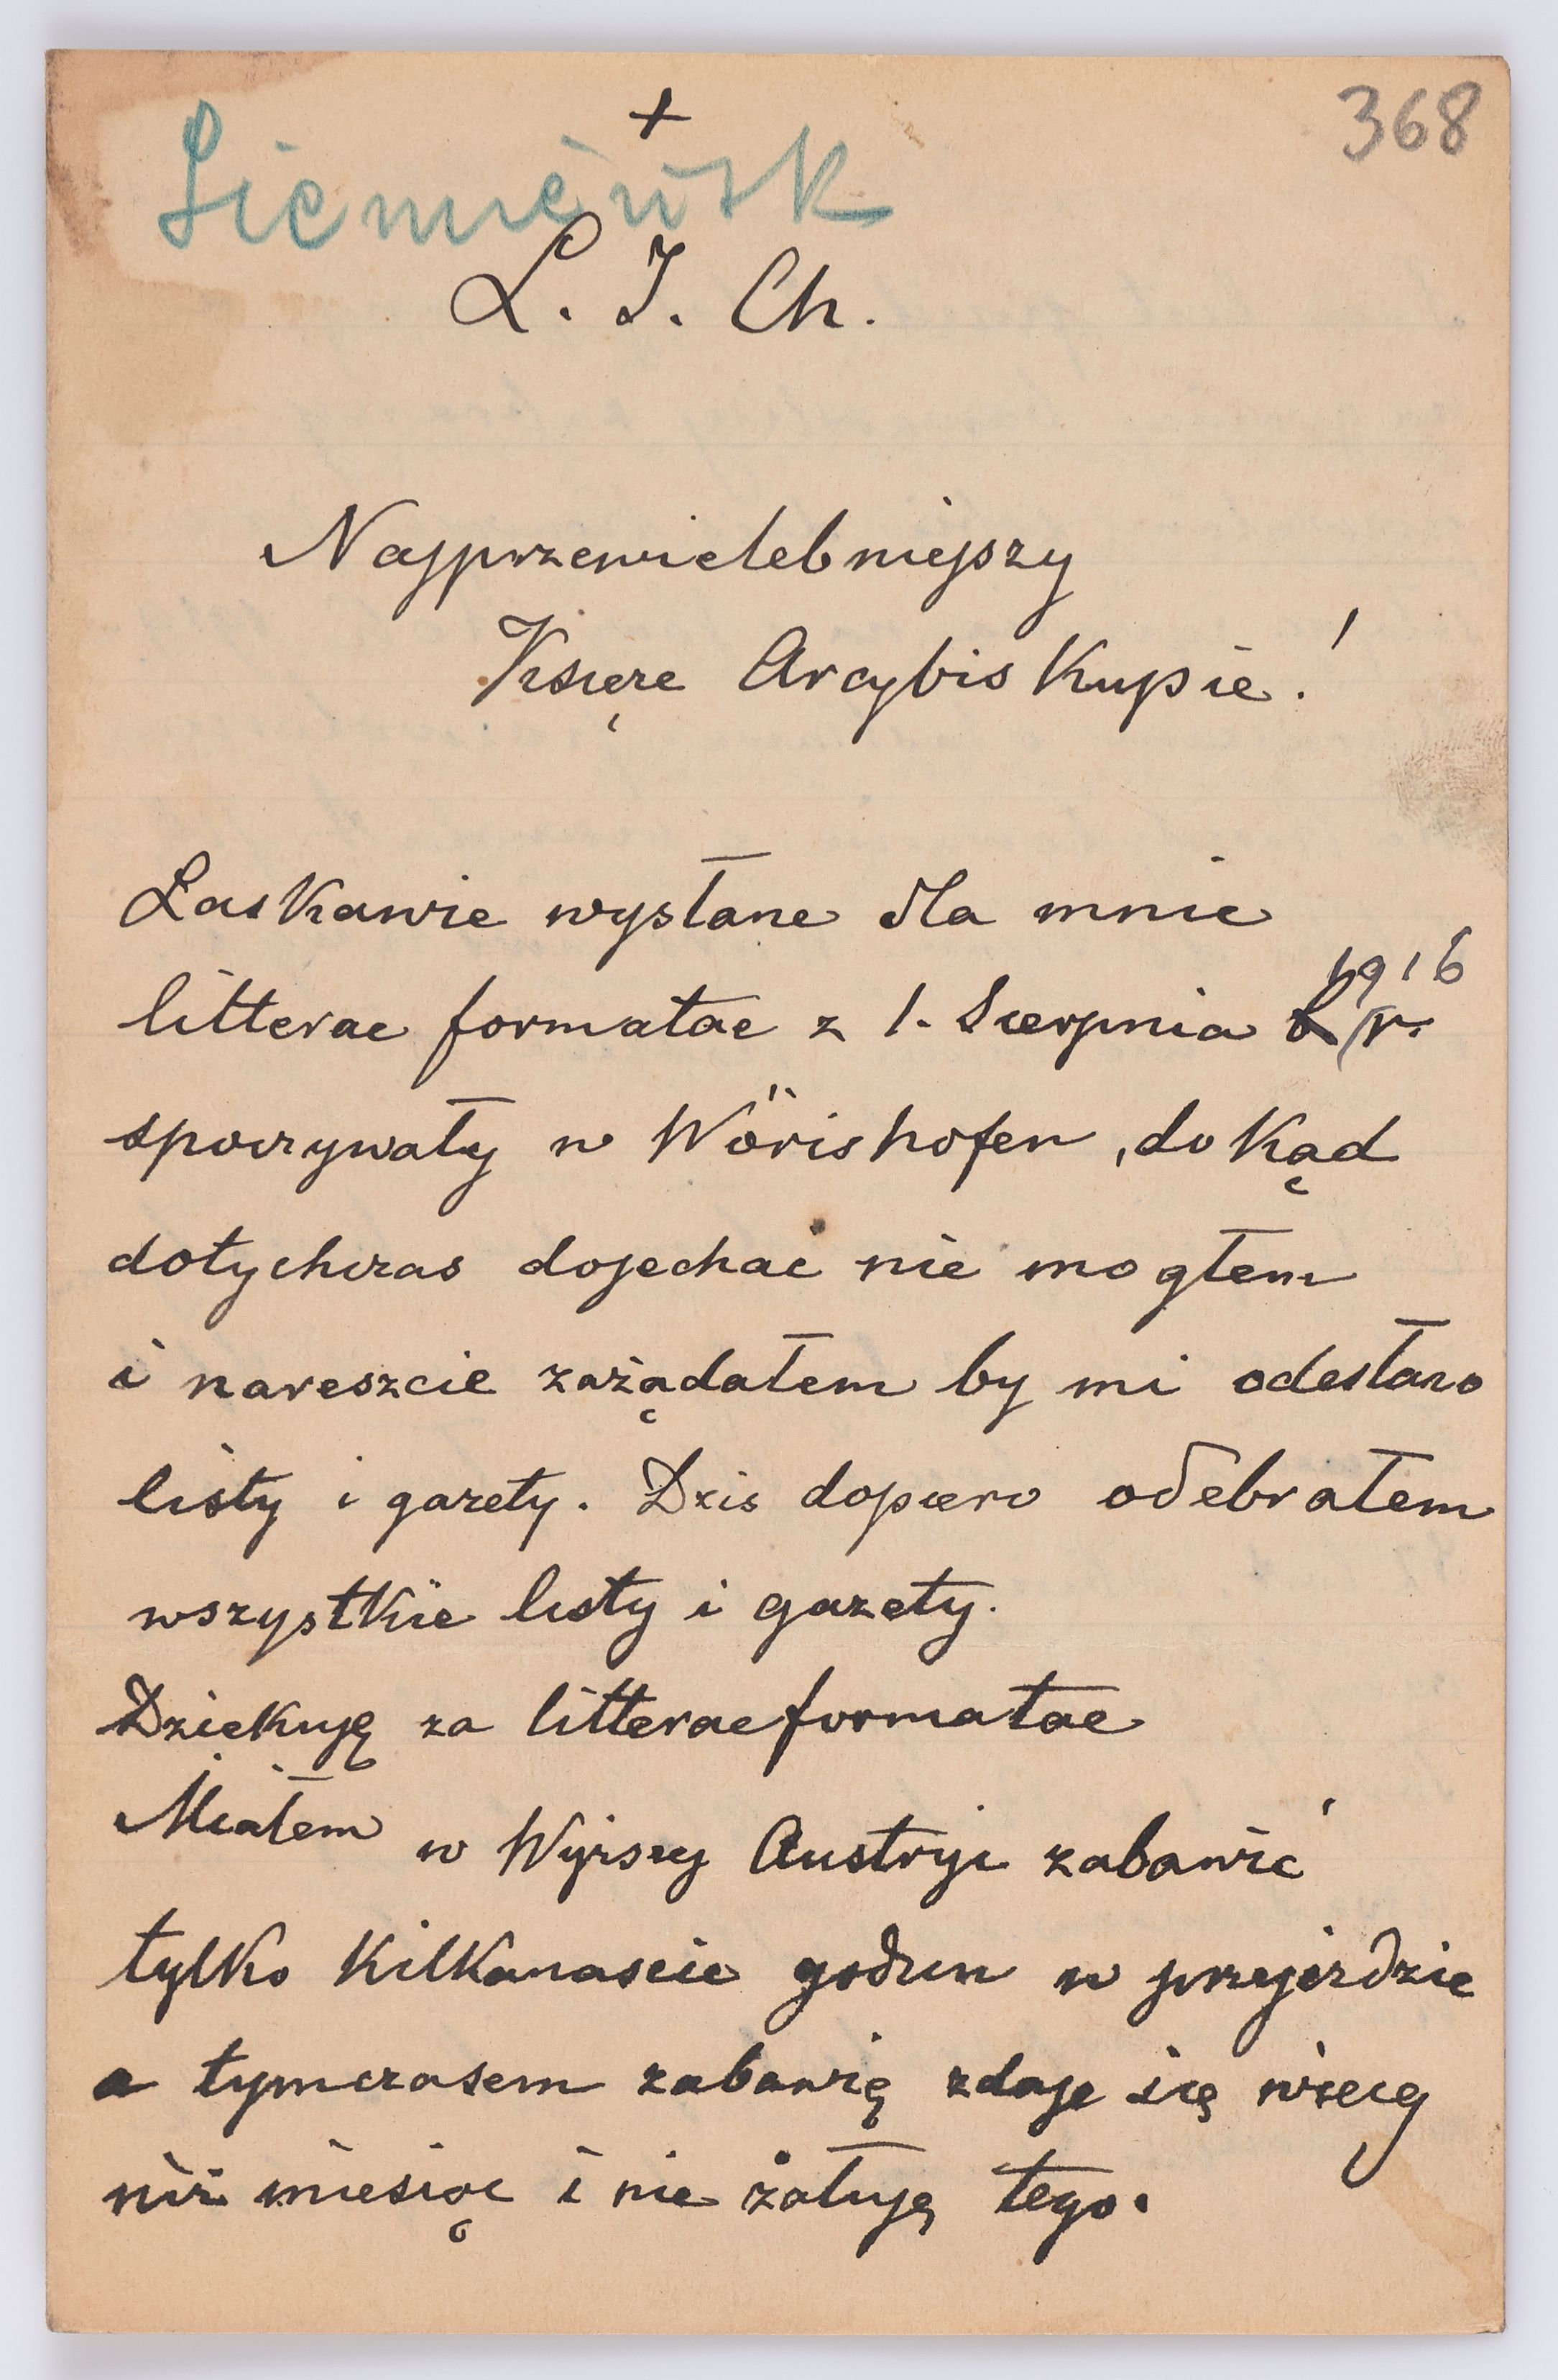 368
+
Siemieńsk
L. J. Ch.
Najprzewielebniejszy
Księże Arcybiskupie!
Łaskawie wysłane dla mnie
1916
litterae formatae z 1. Sierpnia b/r.
spoczywały w Wörishofen, dokąd
dotychczas dojechać nie mogłem
i nareszcie zażądałem by mi odesłano
listy i gazety. Dzis dopiero odebrałem
wszystkie listy i gazety.
Dziekuję za litterae formatae
Miałem w Wyższej Austryi zabawić
tylko kilkanascie godzin w przejezdzie
a tymczasem zabawię zdaje się więcej
niż miesiąc i nie żałuję tego.